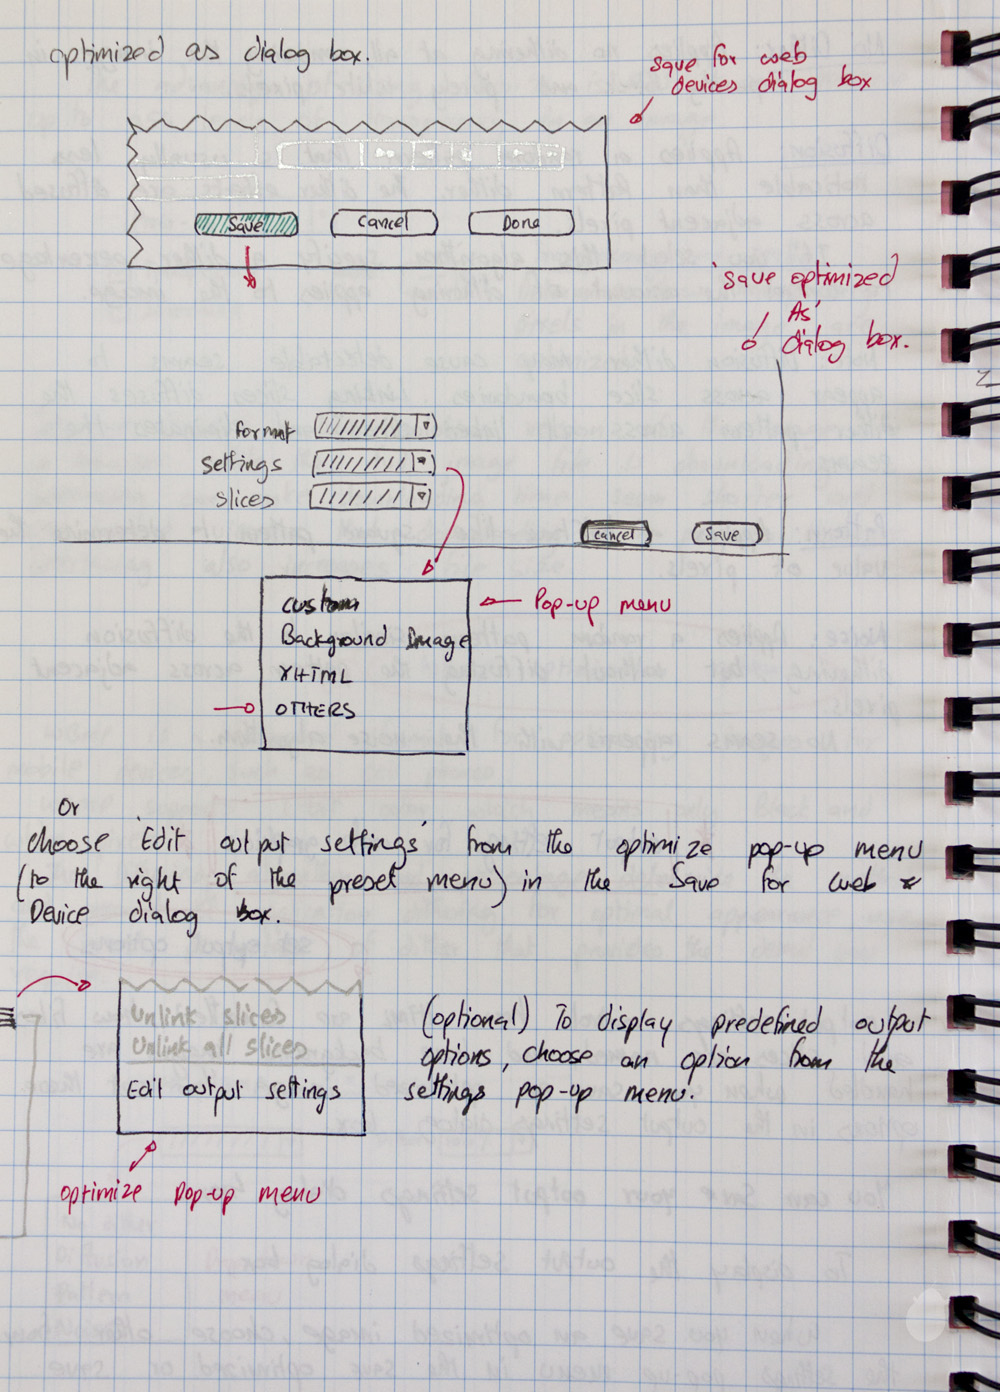 optimized as dialog box.
save for web
devices dialog box
Save
Cancel
Done
'save optimized
As'
dialog box.
format
settings
slices
cancel
Save
custom
Background Image
XHTML
OTHERS
Pop-up menu
Or
choose 'Edit output settings' from the optimize pop-up menu
(to the right of the preset menu) in the Save for web &
Device dialog box.
Unlink slices
Unlink all slices
Edit output settings
optimize pop-up menu
(optional) To display predefined output
options, choose an option from the
settings pop-up menu.